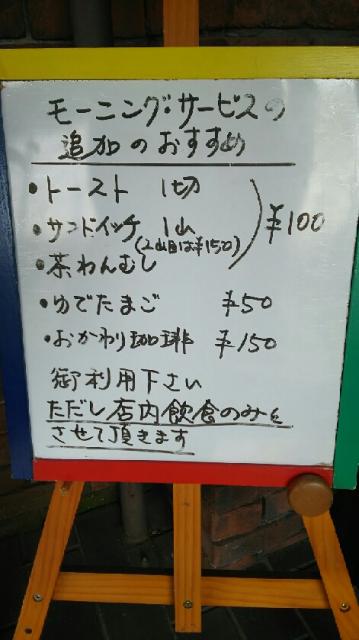 モーニング・サービスの
追加のおすすめ
・トースト 1切
・サンドイッチ 1山 ¥100
(2山目は¥150)
・茶わんむし
・ゆでたまご ¥50
・おかわり珈琲 ¥150
御利用下さい
ただし店内飲食のみと
させて頂きます